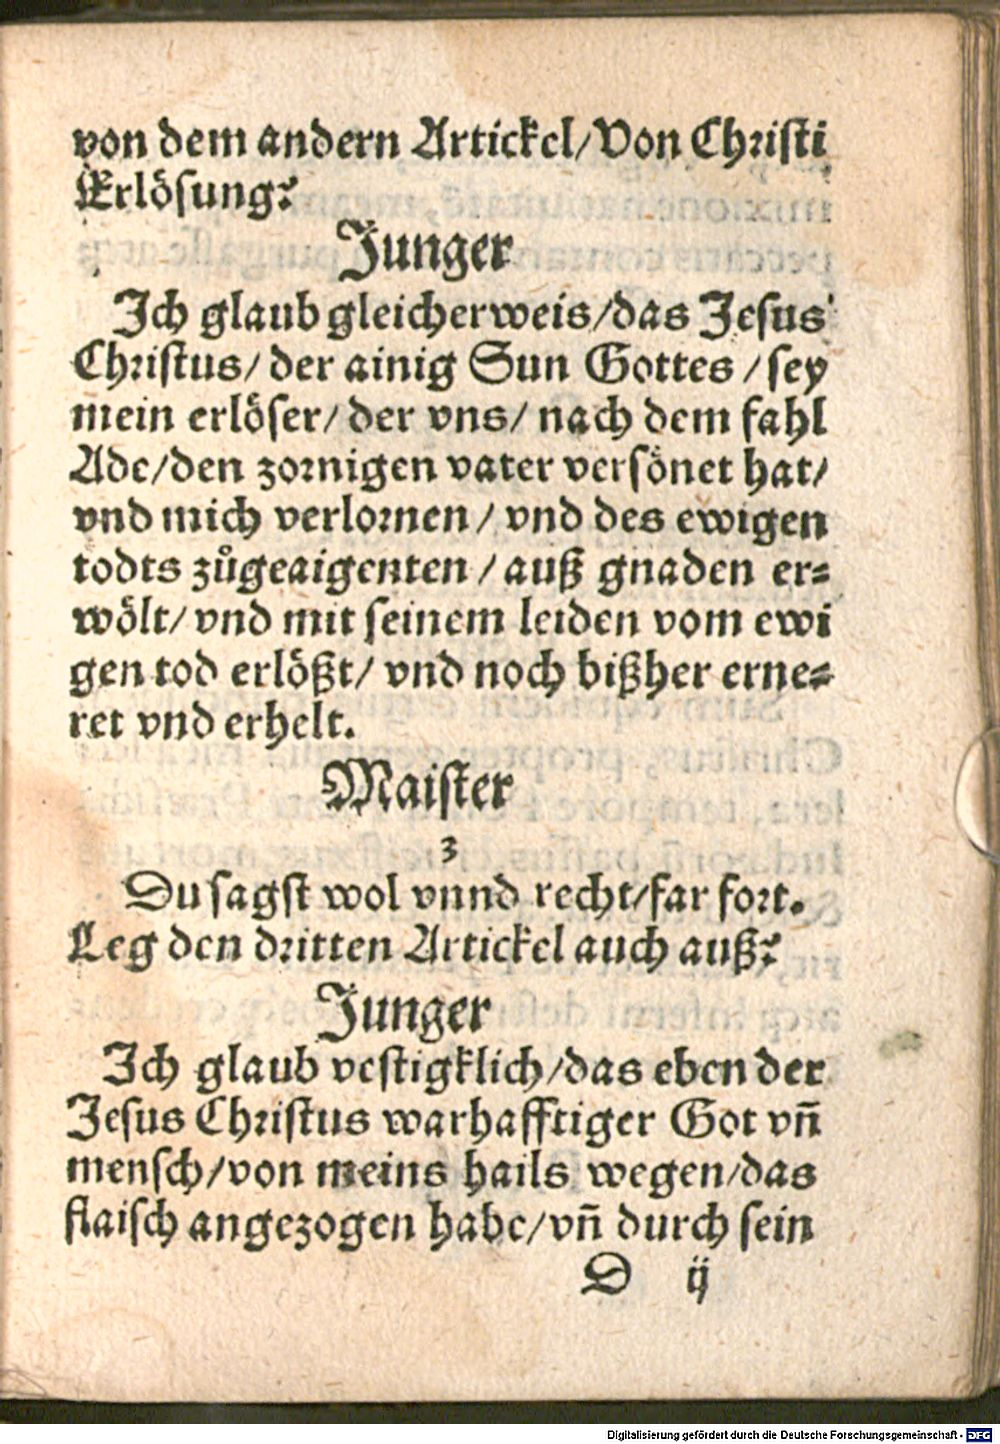 von dem andern Artickel/Von Christi
Erlösung?
Junger
Ich glaub gleicherweis/das Jesus
Christus/ der ainig Sun Gottes /sey
mein erlöser/ der vns/ nach dem fahl
Ade/den zornigen vater versönet hat/
vnd mich verlornen / vnd des ewigen
todts zůgeaigenten / auß gnaden er⸗
wölt/ vnd mit seinem leiden vom ewi
gen tod erlößt/ vnd noch bißher erne⸗
ret vnd erhelt.
Maister
3
Du sagst wol vnnd recht/far fort.
Leg den dritten Artickel auch auß?
Junger
Ich glaub vestigklich/das eben der
Jesus Christus warhafftiger Got vñ
mensch/von meins hails wegen/das
flaisch angezogen habe/vñ durch sein
D ij
Digitalisierung gefördert durch die Deutsche Forschungsgemeinschaft - DFG